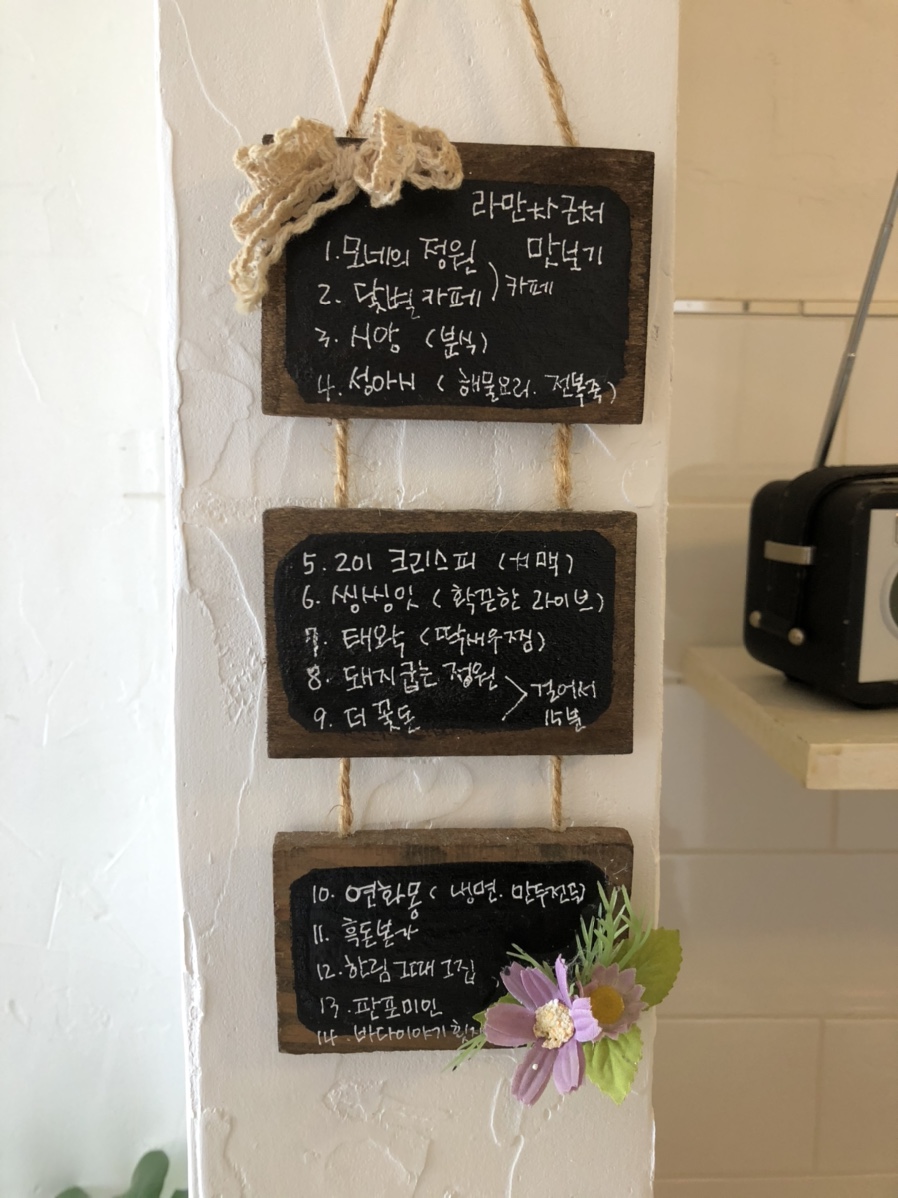 라만차 근처
맛보기
1. 모네의 정원
2. 달빛카페 ) 카페
3. 시앙 (분식)
4. 섬아시 ( 해물요리. 전복죽 )
5. 201 크리스피 (치맥)
6. 씽싱잇 ( 화끈한 라이브)
7. 태왁 (딱새우찜)
8. 돼지굽는 정원
9. 더 꽃돈
> 걸어서
15분
10. 연화몽 ( 냉면. 만두전골)
11. 흑돈본가
12. 한림 그때 그집
13. 판포미인
14. 바다이야기